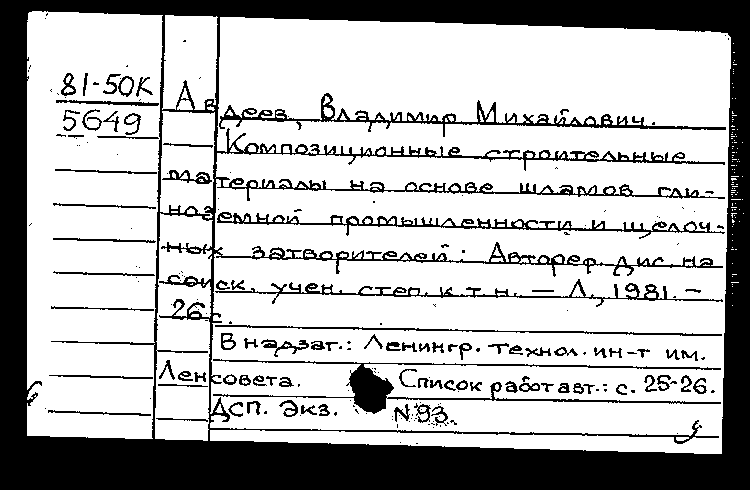 81-50К
5649
Авдеев, Владимир Михайлович.
Композиционные строительные
материалы на основе шламов гли-
ноземной промышленности и щелоч-
ных затворителей: Автореф. дис. на
соиск. учен. степ. к.т.н. — Л., 1981. –
26 с.
В надзаг.: Ленингр. технол. ин-т им.
Ленсовета. Список работ авт.: с. 25-26.
ДСП. Экз. N 93.